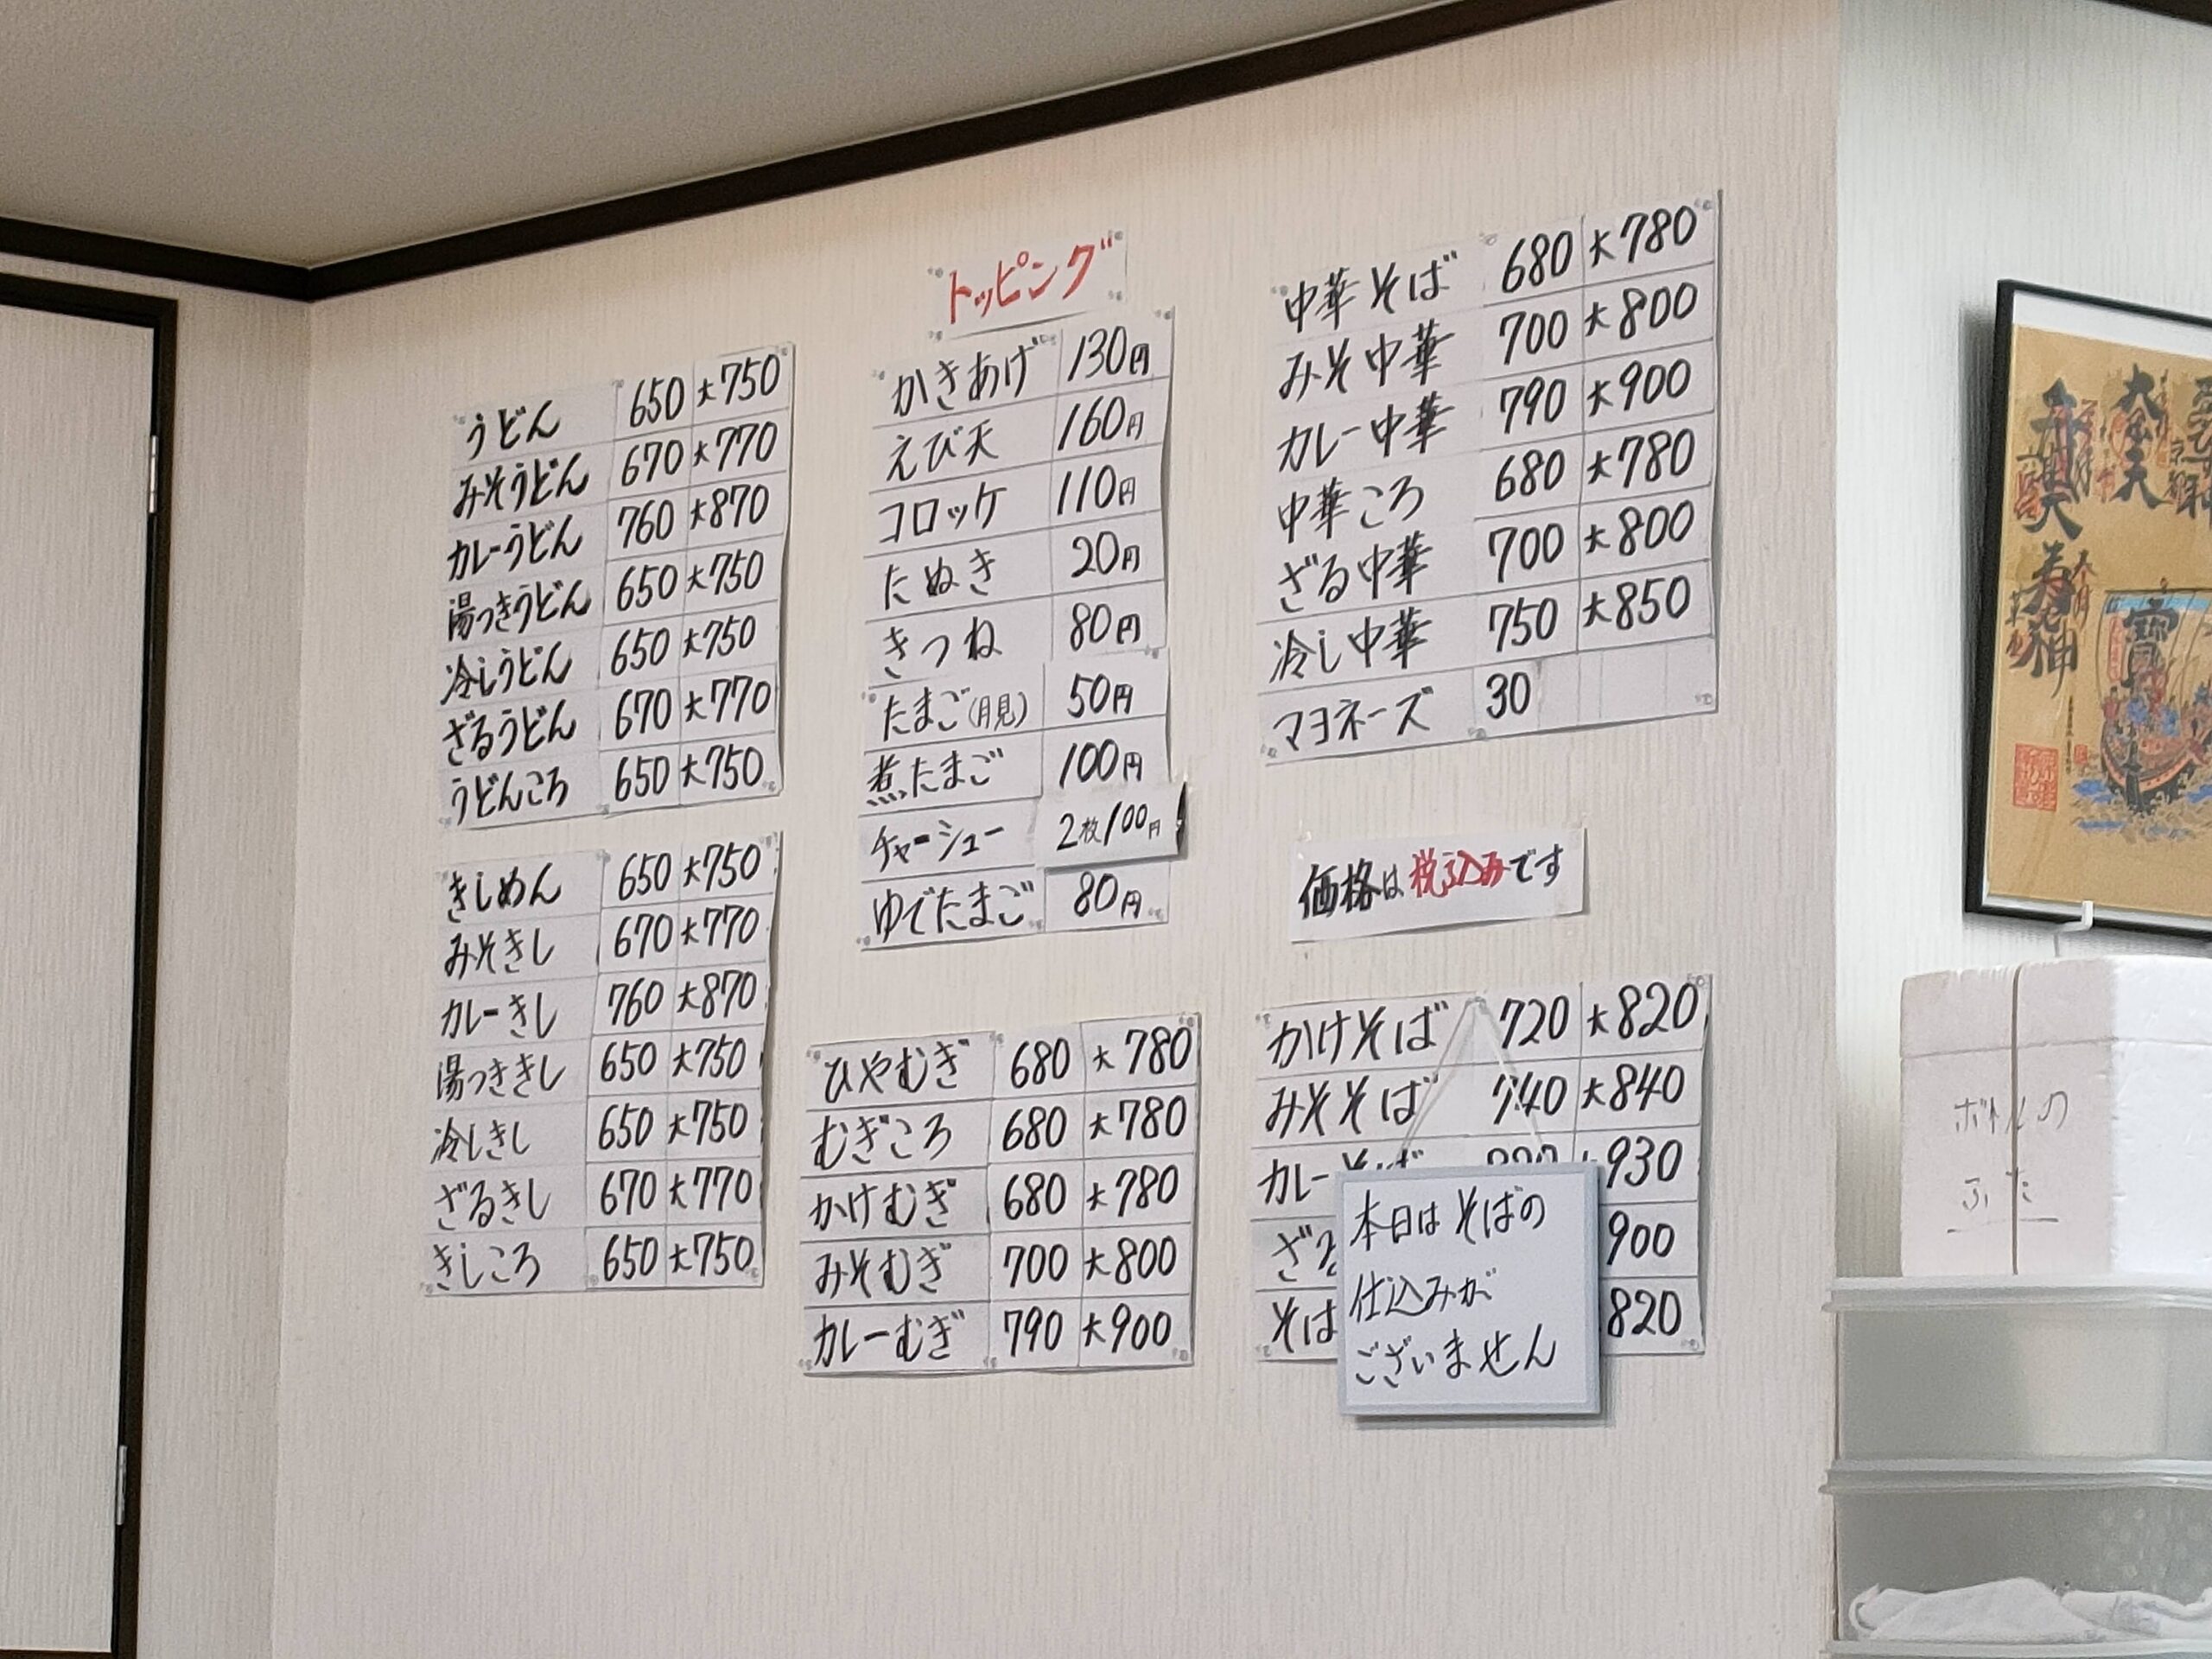 うどん 650 大750
みそうどん 670 大770
カレーうどん 760 大870
湯つきうどん 650 大750
冷しうどん 650 大750
ざるうどん 670 大770
うどんころ 650 大750
きしめん 650 大750
みそきし 670 大770
カレーきし 760 大870
湯つききし 650 大750
冷しきし 650 大750
ざるきし 670 大770
きしころ 650 大750
トッピング
かきあげ 130円
えび天 160円
コロッケ 110円
たぬき 20円
きつね 80円
たまご(月見) 50円
煮たまご 100円
チャーシュー 2枚100円
ゆでたまご 80円
ひやむぎ 680 大780
むぎころ 680 大780
かけむぎ 680 大780
みそむぎ 700 大800
カレーむぎ 790 大900
中華そば 680 大780
みそ中華 700 大800
カレー中華 790 大900
中華ころ 680 大780
ざる中華 700 大800
冷し中華 750 大850
マヨネーズ 30
価格は税込みです
かけそば 720 大820
みそそば 740 大840
カレーそば 930
ざる 900
そば 820
本日はそばの
仕込みが
ございません
ボトルの
ふた